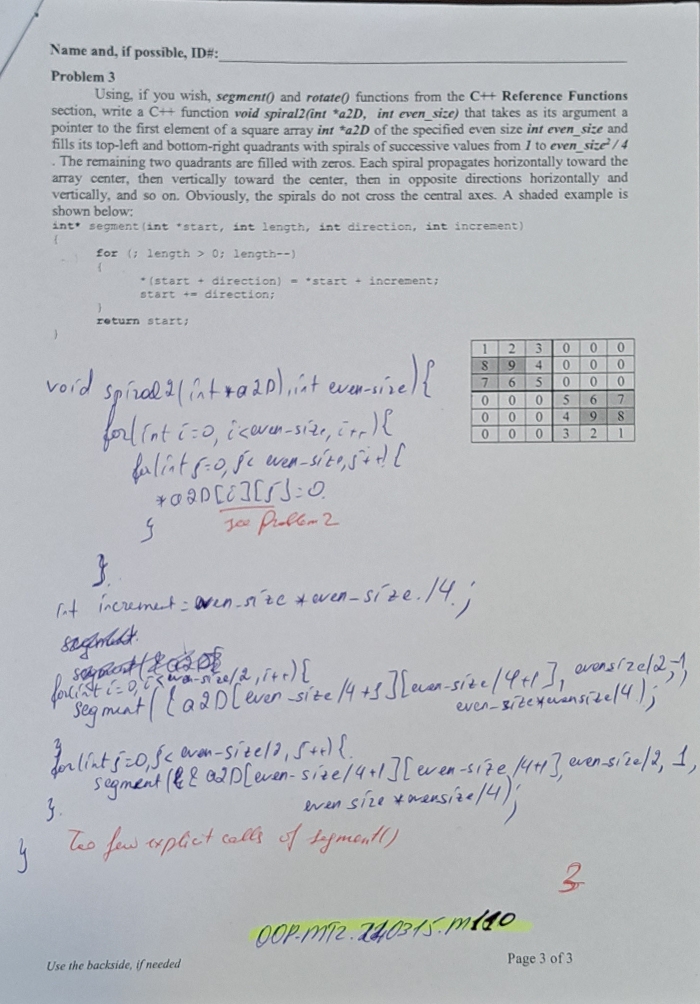 Name and, if possible, ID#:
Problem 3
Using, if you wish, segment() and rotate() functions from the C++ Reference Functions
section, write a C++ function void spiral2(int *a2D, int even_size) that takes as its argument a
pointer to the first element of a square array int *a2D of the specified even size int even_size and
fills its top-left and bottom-right quadrants with spirals of successive values from 1 to even_size²/ 4
. The remaining two quadrants are filled with zeros. Each spiral propagates horizontally toward the
array center, then vertically toward the center, then in opposite directions horizontally and
vertically, and so on. Obviously, the spirals do not cross the central axes. A shaded example is
shown below:
int* segment(int *start, int length, int direction, int increment)
{
for (; length > 0; length--)
{
*(start + direction) = *start + increment;
start += direction;
}
return start;
}
1 2 3 0 0 0
8 9 4 0 0 0
7 6 5 0 0 0
0 0 0 5 6 7
0 0 0 4 9 8
0 0 0 3 2 1
void spiral2(int *a2D), int even-size) {
for(int i=0, i<even-size, i++) {
for(int j=0, j< even-size, j++) {
*a2D[i][j]=0.
}
see Problem 2
}.
int increment = even-size * even-size ./4.;
segment.
segment(& a2D[
for(int i=0, i<even-size/2, i++) {
segment( & a2D[even-size/4+1][even-size/4+1], evensize/2,-1,
even-size*evensize/4);
}
for(int j=0, j< even-size/2, j++) {
segment(& & a2D[even-size/4+1][even-size/4+1], even-size/2, 1,
even size * evensize/4);
}.
}
Too few explicit calls of segment()
3
OOP.MT2.240315.M110
Use the backside, if needed
Page 3 of 3